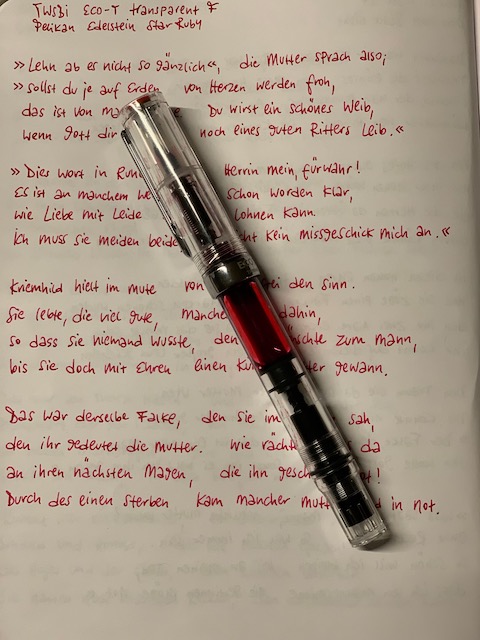 TWSBI ECO-T transparent F
Pelikan Edelstein Star Ruby
»Lehn ab es nicht so gänzlich«, die Mutter sprach also;
»sollst du je auf Erden von Herzen werden froh,
das ist von Du wirst ein schönes Weib,
wenn Gott dir noch eines guten Ritters Leib.«
»Dies Wort in Herrin mein, fürwahr!
Es ist an manchem schon worden klar,
wie Liebe mit Leide lohnen kann.
Ich muss sie meiden beide kein missgeschick mich an.«
Kriemhild hielt im mute von den sinn.
Sie lebte, die viel gute, dahin,
so dass sie niemand wusste, den zum mann,
bis sie doch mit Ehren einen gewann.
Das war derselbe Falke, den sie im sah,
den ihr gedeutet die mutter. wie da
an ihren nächsten Magen, die ihn
Durch des einen sterben kam mancher in not.